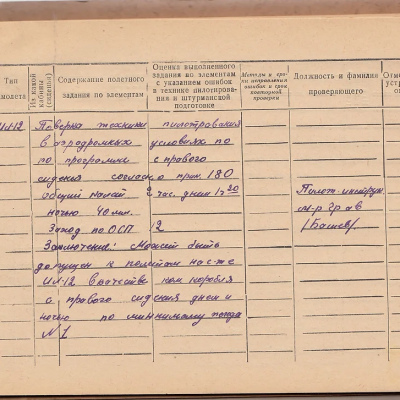 Тип
молета
Из какой
кабины
(сидения)
Содержание полетного
задания по элементам
Оценка выполненного
задания по элементам
с указанием ошибок
в технике пилотирова-
ния и штурманской
подготовке
Методы и сро-
ки исправления
ошибок и срок
повторной
проверки
Должность и фамилия
проверяющего
Отме
устр
ош
Ил-12 Поверка техники пилотравания
в аэродромных условиях по
по программи с правого
сидения согласно прик. 180
общий налёт 2 час. днём 1ч 20
ночью 40 мин.
Заход по ОСП 12
Заключение: Может быть
допущен к полётам на с-те
Ил-12 в качестве ком корабля
с правого сидения днём и
ночью по минимому погоды
№ 1
Пилот-инструк.
м-р Граф